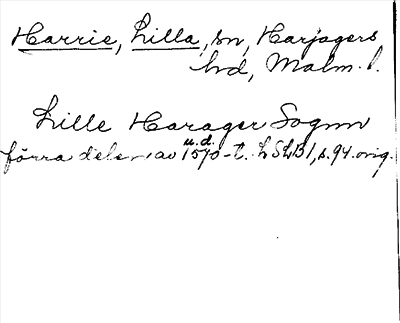 Harrie, Lilla, sn, Harjagers
hd, Malm. l.
Lille Harager Sognn
u.d.
förra delen av 1570-t. LSLB 1, s. 94. orig.